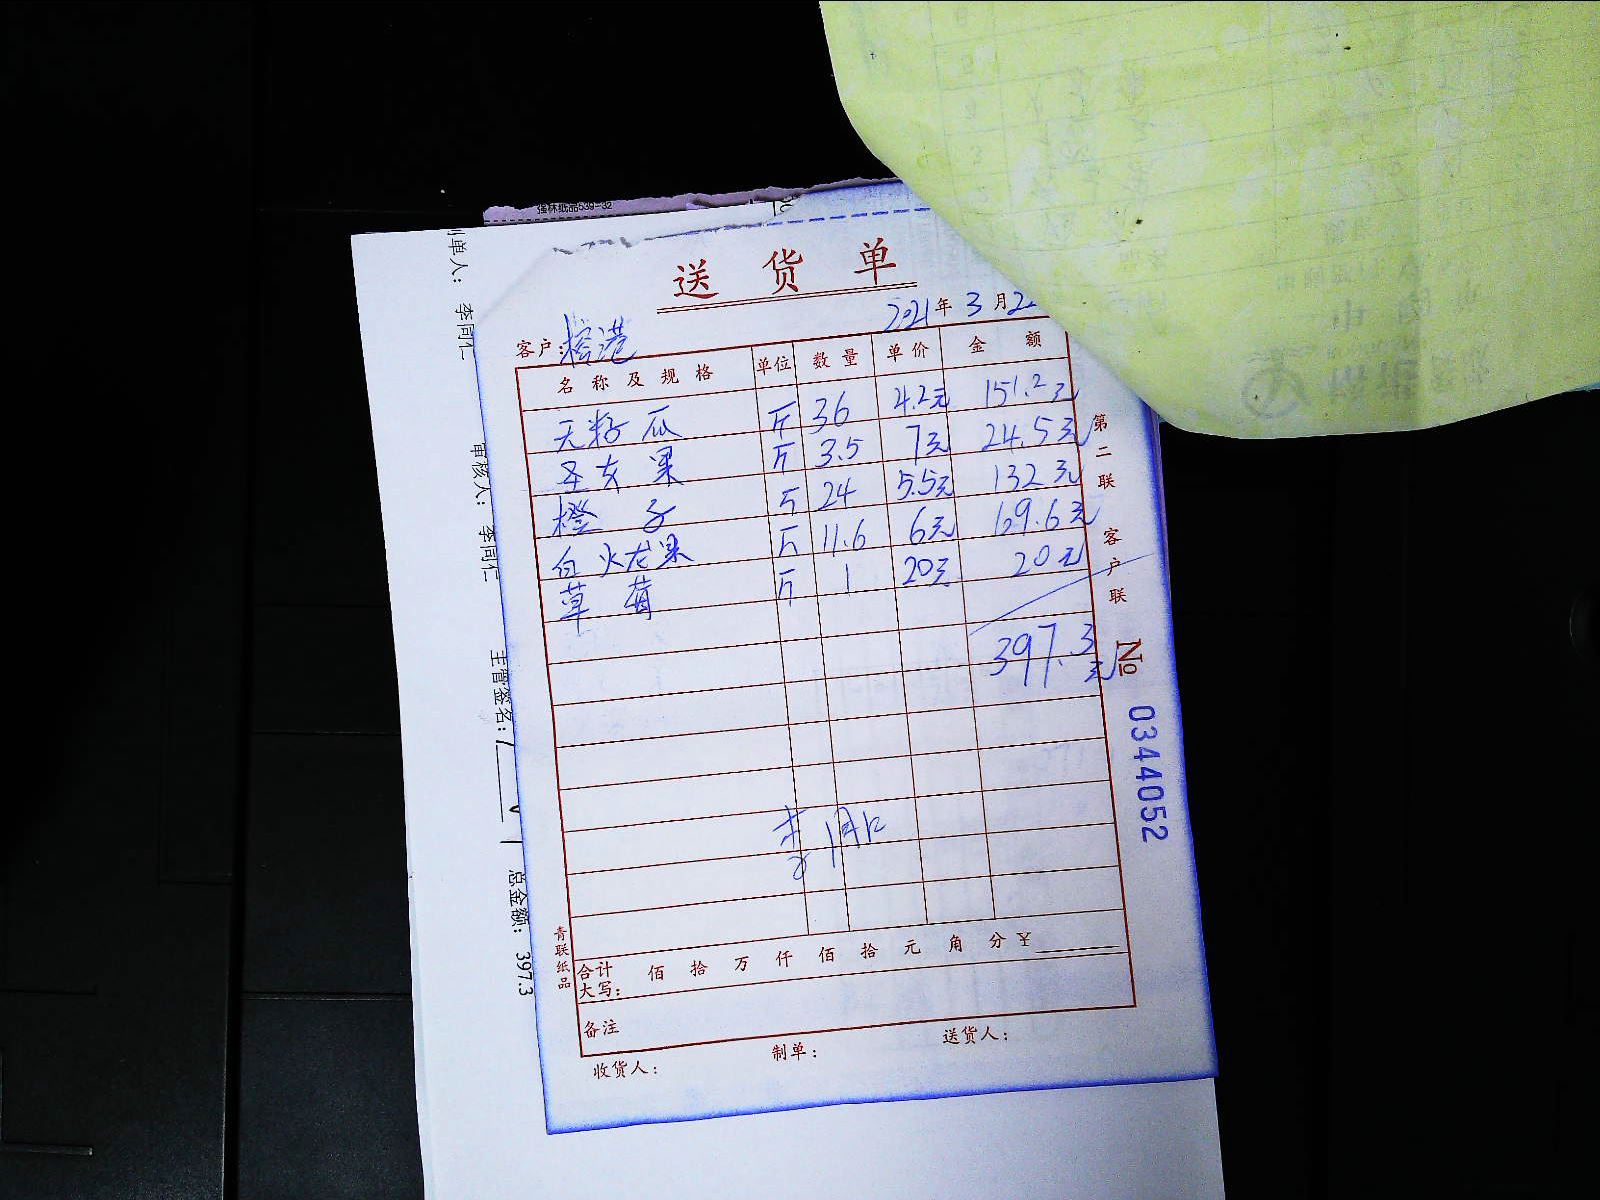 强林纸品539-32
送货单
2021年3月2
客户:榕港
名称及规格 单位 数量 单价 金额
无籽瓜 斤 36 4.2元 151.2元
圣女果 斤 3.5 7元 24.5元
橙子 斤 24 5.5元 132元
白火龙果 斤 11.6 6元 69.6元
草莓 斤 1 20元 20元
397.3元
李同仁
合计大写: 佰拾万仟佰拾元角分¥
备注
收货人: 制单: 送货人:
第二联 客户联
No 0344052
青联纸品
制单人: 李同仁
审核人: 李同仁
主管签名:
总金额: 397.3